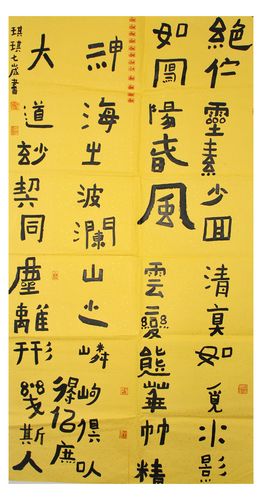 絕佇靈素少回清真如覓水影
如寫陽春風雲變態華艸精
神海之波瀾山之嶙峋俱㠯
大道玅契同塵離形得佀庶幾斯人
琪琪七歲書